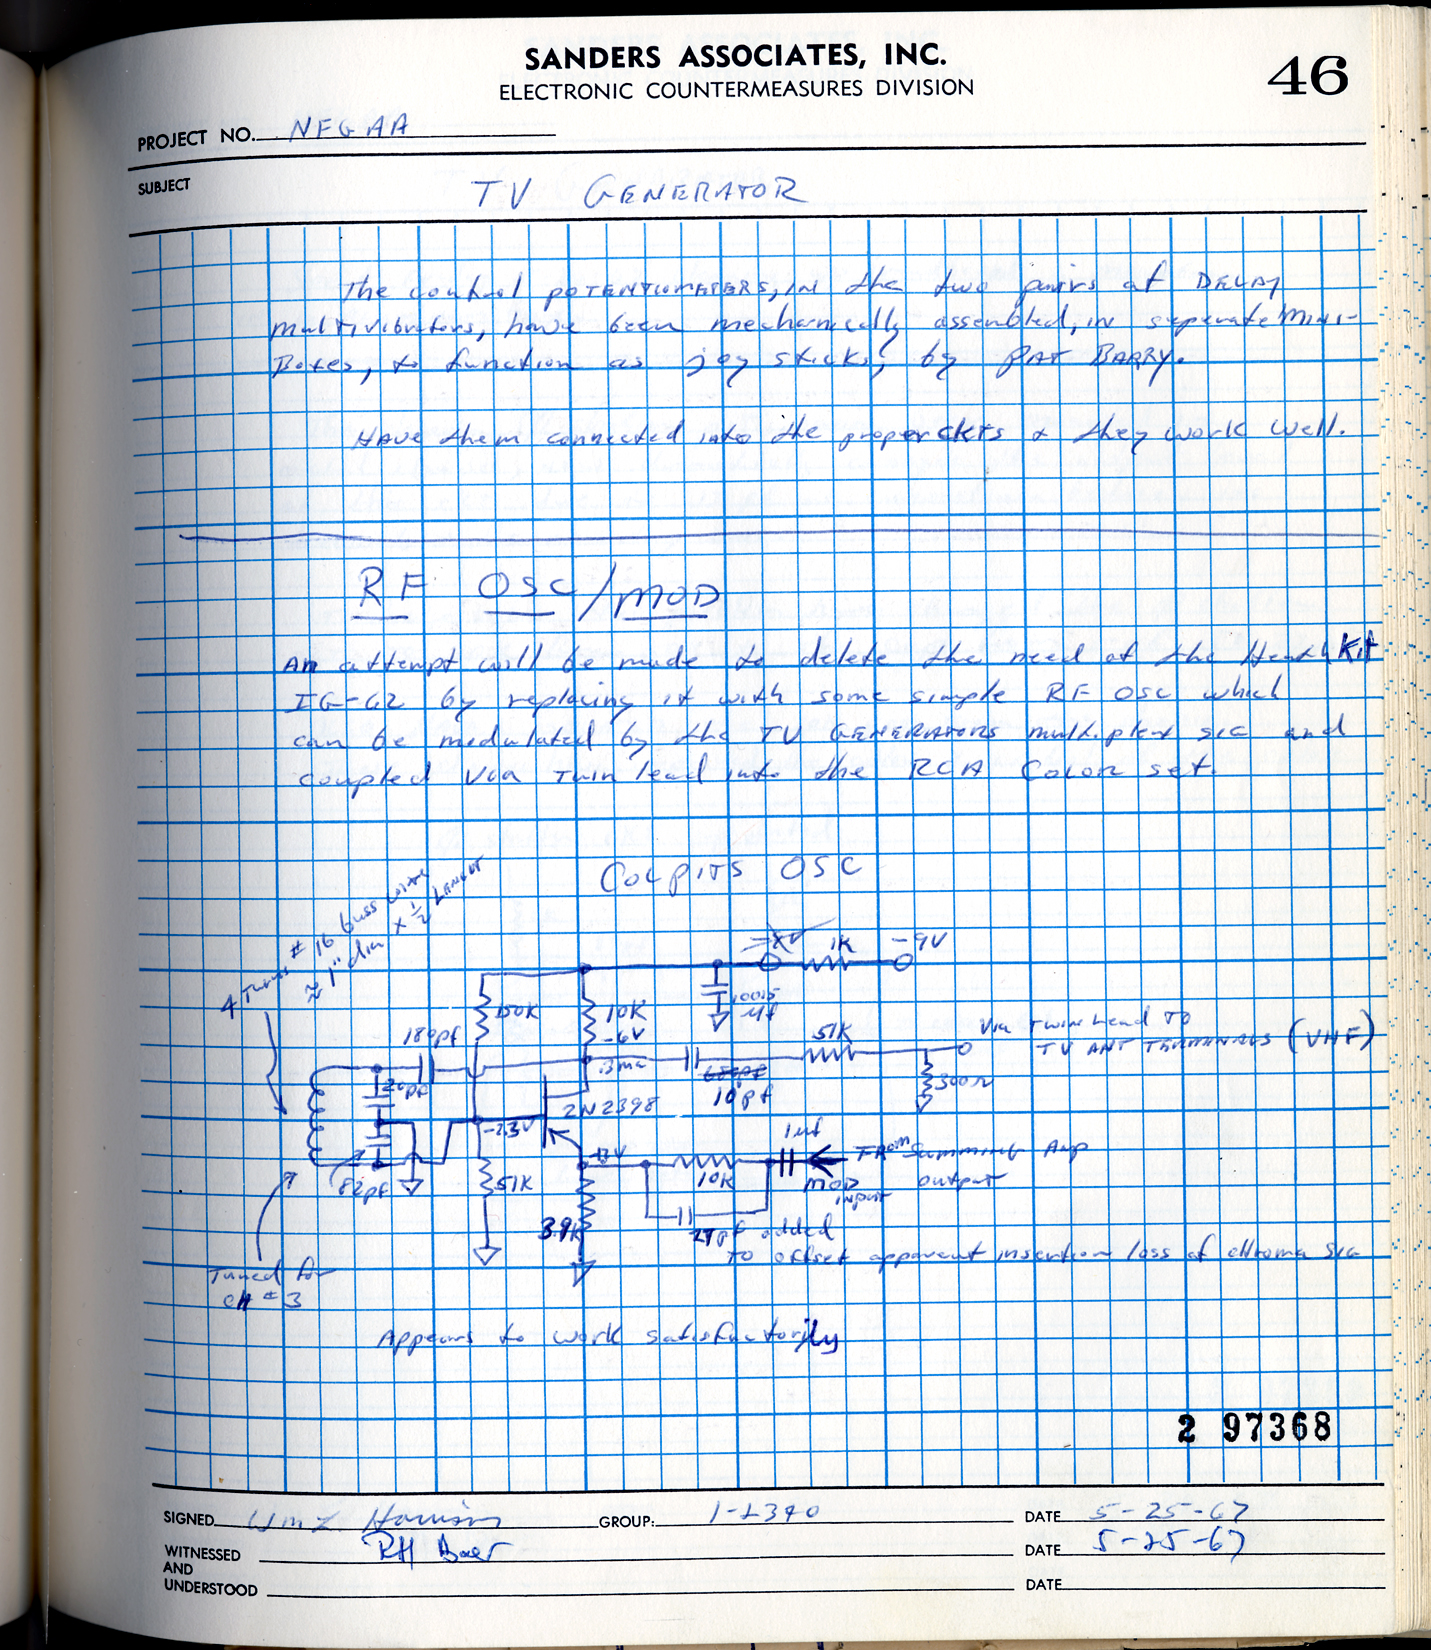 SANDERS ASSOCIATES, INC.
ELECTRONIC COUNTERMEASURES DIVISION
46
PROJECT NO. NFGAA
SUBJECT
TV GENERATOR
The control POTENTIOMETERS, IN the two pairs of DELAY
multivibrators, have been mechanically assembled, in seperate Mini-
Boxes, to function as joy sticks, by PAT BARRY.
HAVE them connected into the proper ckts & they work well.
RF OSC/MOD
An attempt will be made to delete the need of the Heath Kit
IG-62 by replacing it with some simple RF OSC which
can be modulated by the TV GENERATORS multiplex SIG and
coupled via twin lead into the RCA Color set.
COLPITS OSC
4 Turns # 16 buss wire
≈ 1" dia x 1/2 LENGHT
1K
-9V
150K
10K
-6V
.3ma
.0015
µf
180pf
20pf
82pf
51K
Via Twin Lead TO
TV ANT TERMINALS (VHF)
680pf
10pf
300Ω
2N2398
-2.3V
51K
3.9K
10K
1µf
FROM Summing Amp
output
MOD
input
27pf added
TO offset apparent insertion loss of chroma SIG
Tuned for
CH #3
Appears to work satisfactorily
2 97368
SIGNED Wm L. Harrison GROUP: 1-1340 DATE 5-25-67
WITNESSED RH Baer DATE 5-25-67
AND
UNDERSTOOD DATE